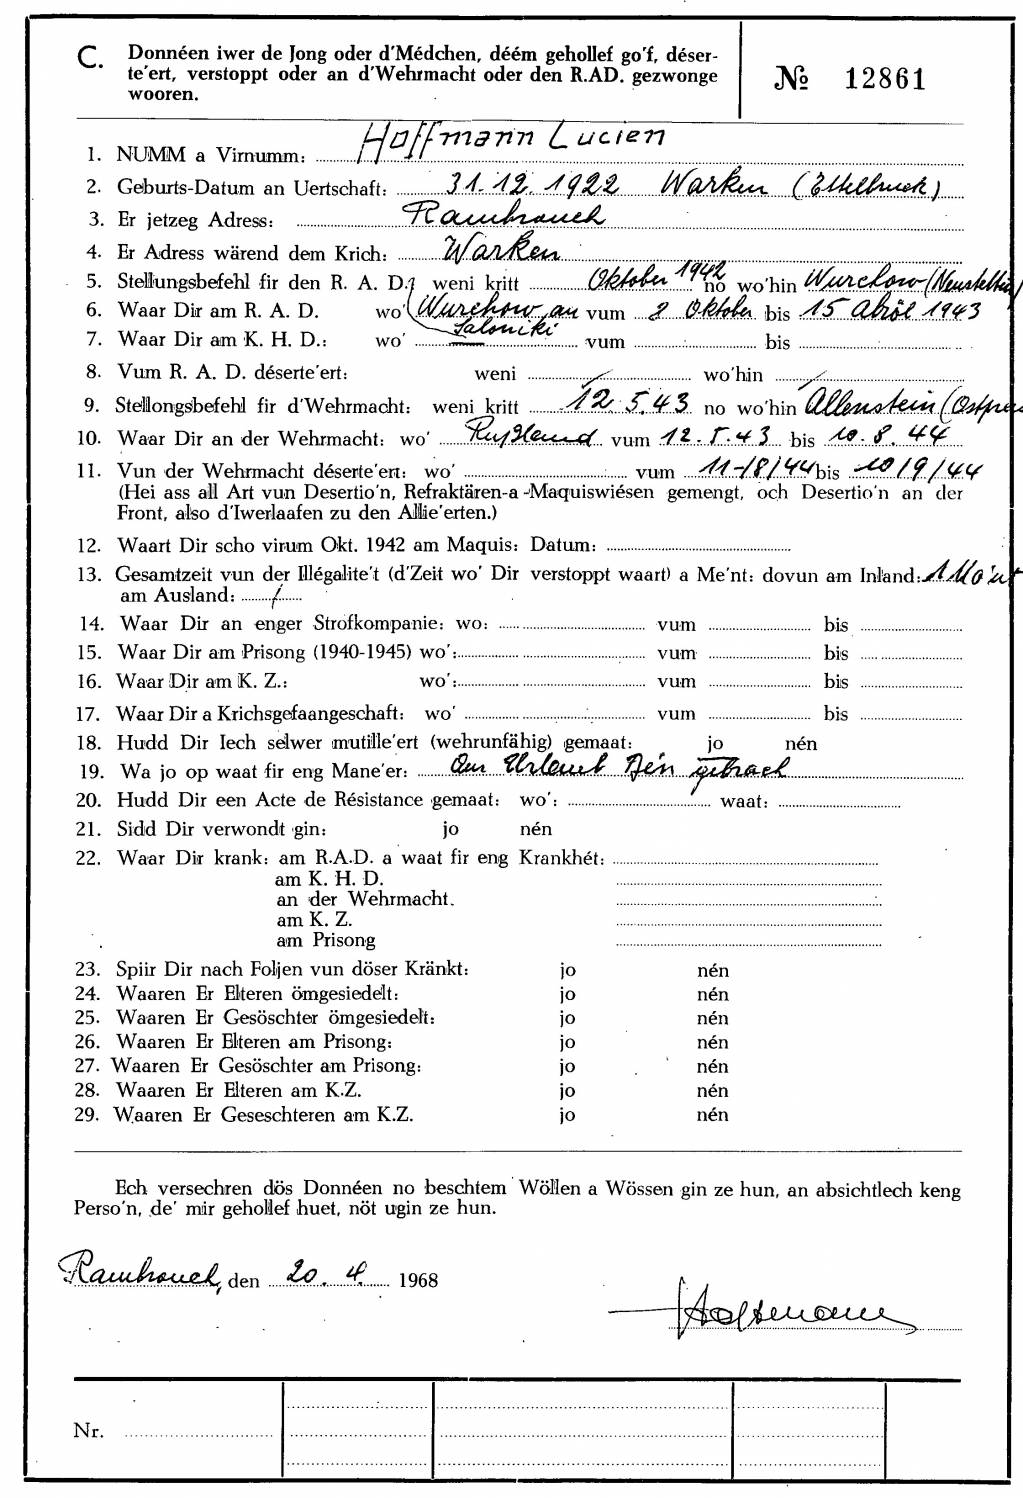 C. Donnéen iwer de Jong oder d'Médchen, déém gehollef go'f, déser-
te'ert, verstoppt oder an d'Wehrmacht oder den R.AD. gezwonge
wooren.
№ 12861
1. NUMM a Virnumm: Hoffmann Lucien
2. Geburts-Datum an Uertschaft: 31.12.1922 Warken (Ettelbruck)
3. Er jetzeg Adress: Rambrouch
4. Er Adress wärend dem Krich: Warken
5. Stellungsbefehl fir den R. A. D.: weni kritt Oktober 1942 no wo'hin Wurchow (Neustettin)
6. Waar Dir am R. A. D. wo' Wurchow an vum 2 Oktober bis 15 Abröl 1943
Saloniki
7. Waar Dir am K. H. D.: wo' vum bis
8. Vum R. A. D. déserte'ert: weni / wo'hin /
9. Stellongsbefehl fir d'Wehrmacht: weni kritt 12 5.43 no wo'hin Allenstein (Ostpreu
10. Waar Dir an der Wehrmacht: wo' Rußland vum 12.5.43 bis 10.8.44
11. Vun der Wehrmacht déserte'ert: wo' vum 11-/8/44 bis 10/9/44
(Hei ass all Art vun Desertio'n, Refraktären-a-Maquiswiésen gemengt, och Desertio'n an der
Front, also d'Iwerlaafen zu den Allie'erten.)
12. Waart Dir scho virum Okt. 1942 am Maquis: Datum:
13. Gesamtzeit vun der Illégalite't (d'Zeit wo' Dir verstoppt waart) a Me'nt: dovun am Inland: 1 Mo'nt
am Ausland: /
14. Waar Dir an enger Strofkompanie: wo: vum bis
15. Waar Dir am Prisong (1940-1945) wo': vum bis
16. Waar Dir am K. Z.: wo': vum bis
17. Waar Dir a Krichsgefaangeschaft: wo' vum bis
18. Hudd Dir Iech selwer mutille'ert (wehrunfähig) gemaat: jo nén
19. Wa jo op waat fir eng Mane'er: Am Urlaub Bén gebrach
20. Hudd Dir een Acte de Résistance gemaat: wo': waat:
21. Sidd Dir verwondt gin: jo nén
22. Waar Dir krank: am R.A.D. a waat fir eng Krankhét:
am K. H. D.
an der Wehrmacht.
am K. Z.
am Prisong
23. Spiir Dir nach Foljen vun döser Kränkt: jo nén
24. Waaren Er Elteren ömgesiedelt: jo nén
25. Waaren Er Gesöschter ömgesiedelt: jo nén
26. Waaren Er Elteren am Prisong: jo nén
27. Waaren Er Gesöschter am Prisong: jo nén
28. Waaren Er Elteren am K.Z. jo nén
29. Waaren Er Geseschteren am K.Z. jo nén
Ech versechren dös Donnéen no beschtem Wöllen a Wössen gin ze hun, an absichtlech keng
Perso'n, de' mir gehollef huet, nöt ugin ze hun.
Rambrouch, den 20. 4. 1968
Hoffmann
Nr.